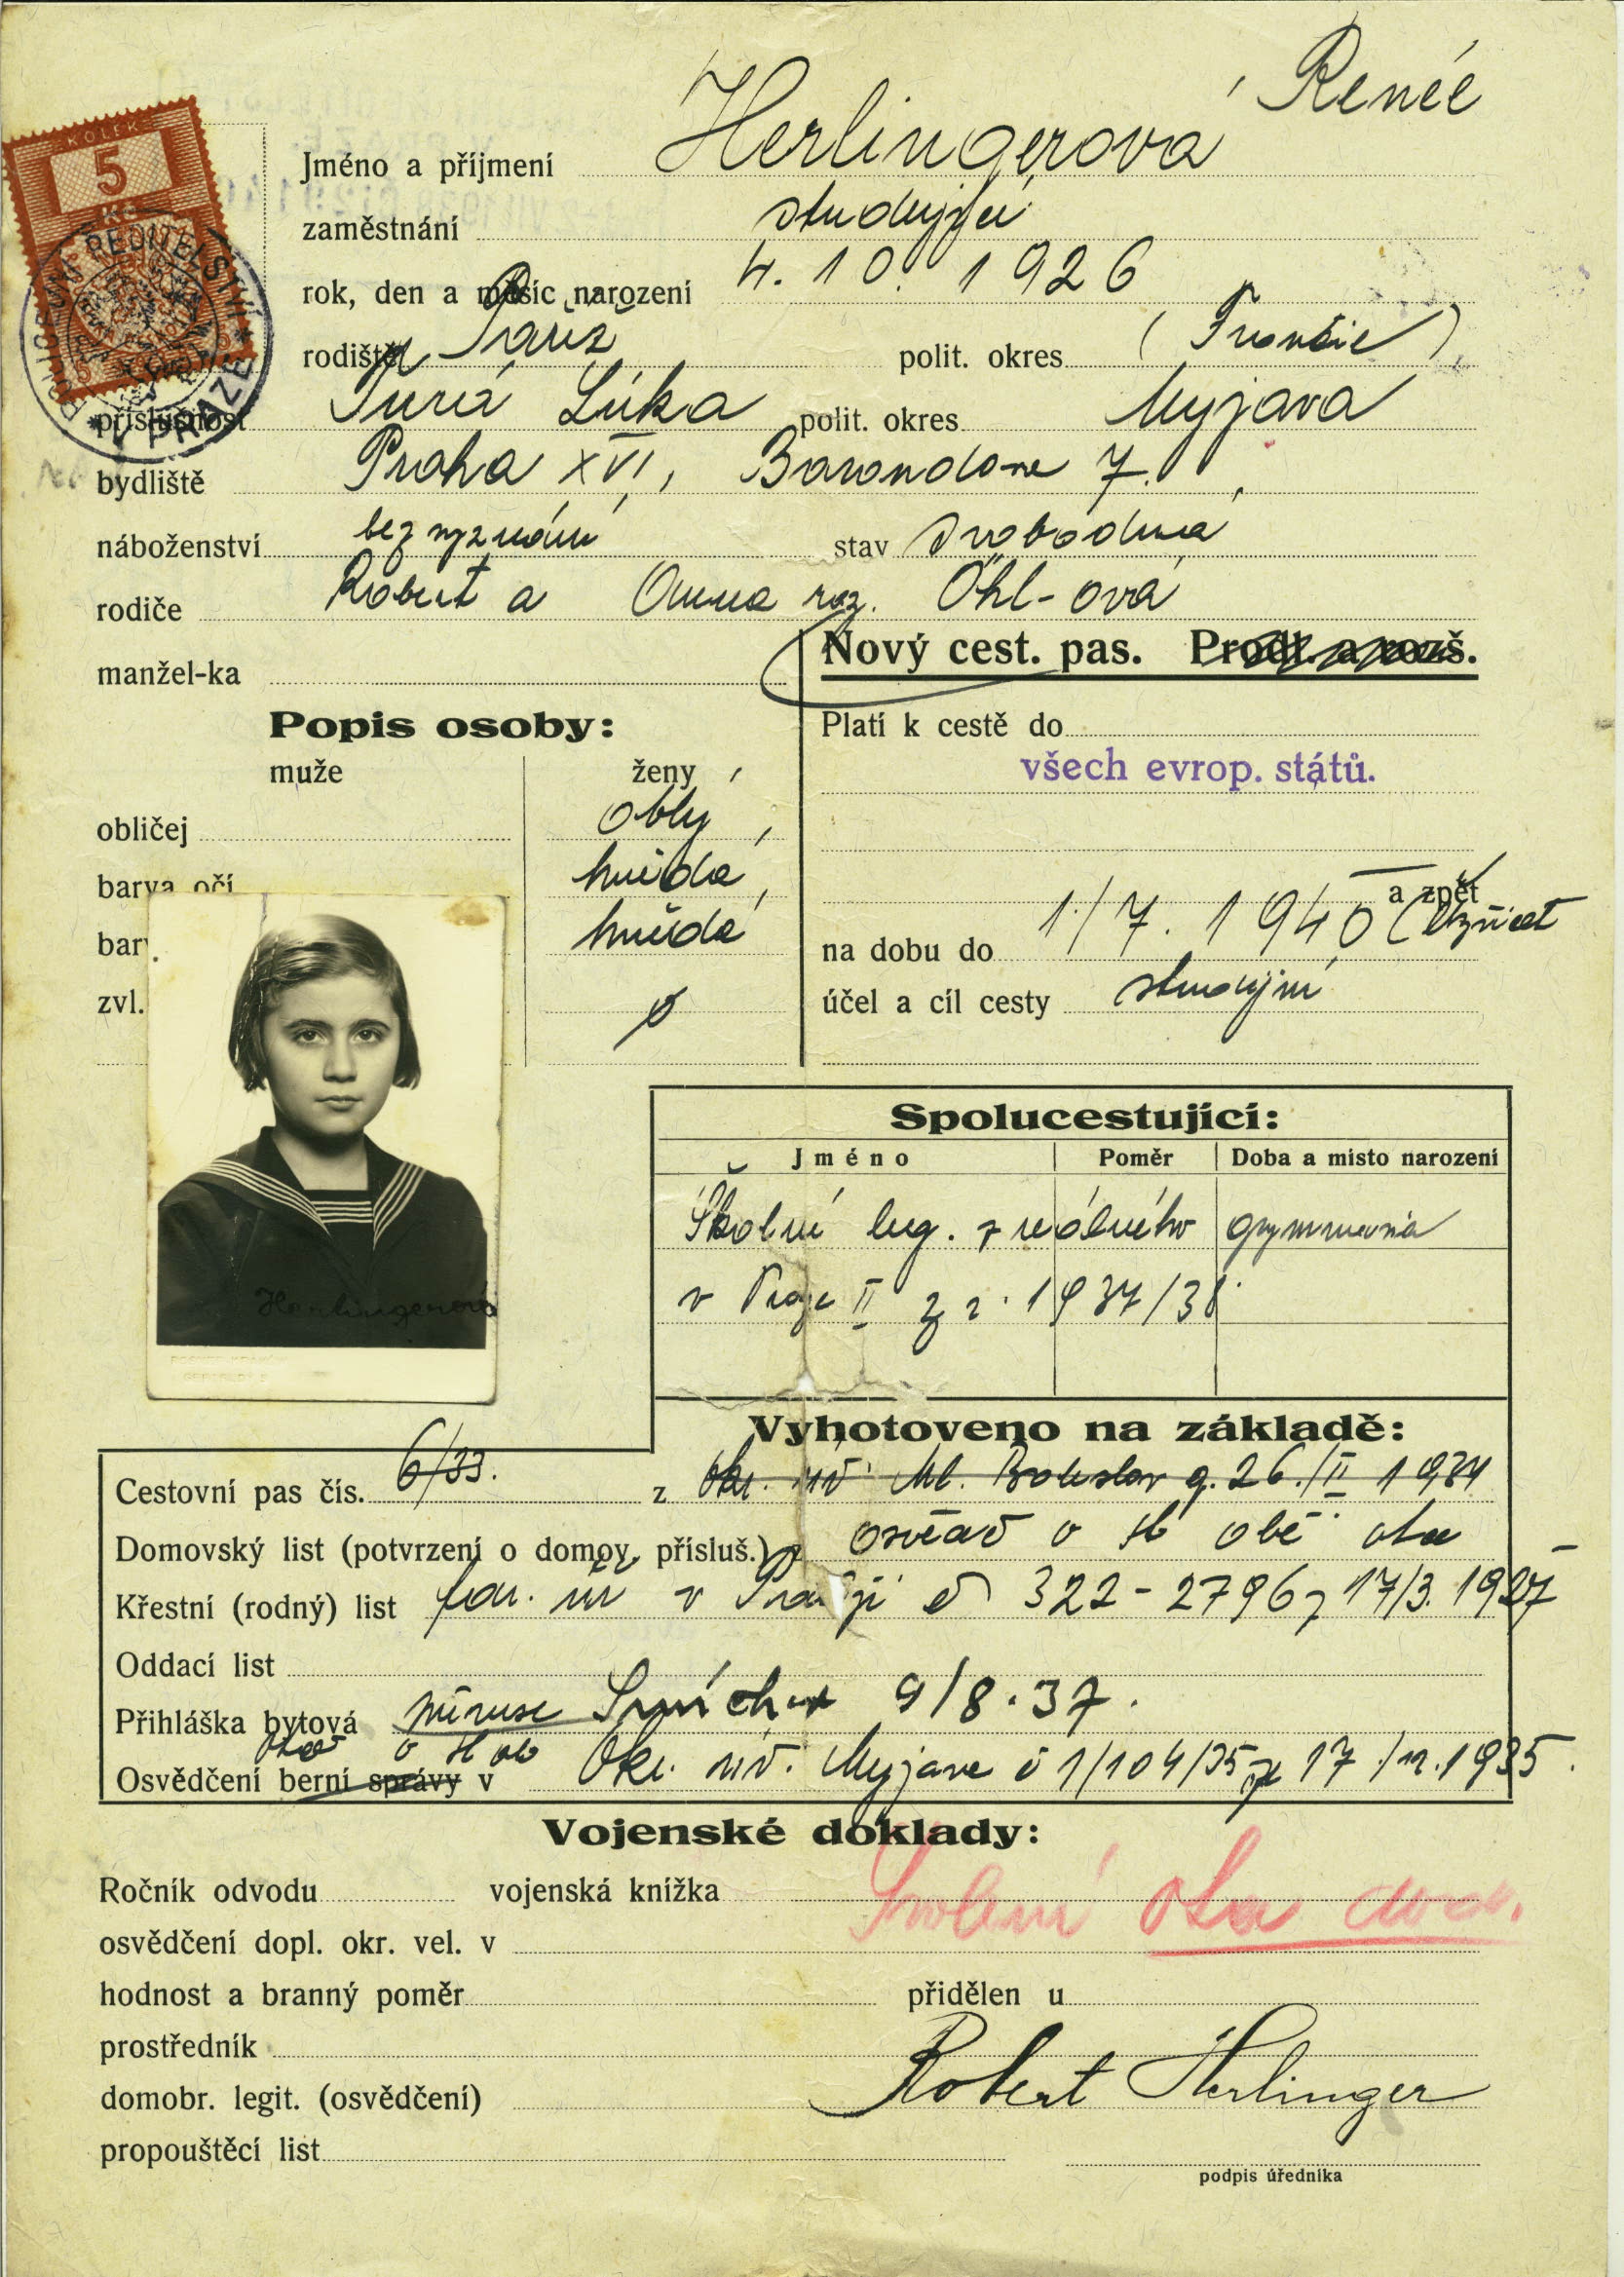 Herlingerová Renée
Jméno a příjmení
KOLEK
5
Kč
POLICEJNÍ ŘEDITELSTVÍ * V PRAZE *
zaměstnání studující
rok, den a měsíc narození 4. 10. 1926
rodiště Paříž polit. okres (Francie)
příslušnost Turá Lúka polit. okres Myjava
bydliště Praha XVI, Barrandove 7.
náboženství bez vyznání stav svobodná
rodiče Robert a Anna roz. Öhl-ová
manžel-ka
Nový cest. pas. Prodl. a rozš.
Popis osoby:
muže ženy
obličej oblý
barva očí hnědá
bar hnědá
zvl. ø
Platí k cestě do
všech evrop. států.
a zpět
na dobu do 1./7. 1940
účel a cíl cesty studijní
Herlingerová
Spolucestující:
Jméno Poměr Doba a místo narození
Školní leg. z reálného gymnasia
v Praze II z r. 1937/38
Vyhotoveno na základě:
Cestovní pas čís. 6/33. z Okr. úř. Ml. Boleslav 26./II 1934
Domovský list (potvrzení o domov. přísluš.) z
Křestní (rodný) list v Paříži č 322-2796 z 17/3. 1927
Oddací list
Přihláška bytová Smíchov 9/8.37.
Osvědčení berní správy v o st ob Okr. úř. Myjava č 1/104/35 z 17./12.1935.
Vojenské doklady:
Ročník odvodu vojenská knížka
Svolení otce
osvědčení dopl. okr. vel. v
hodnost a branný poměr přidělen u
prostředník
Robert Herlinger
domobr. legit. (osvědčení)
propouštěcí list
podpis úředníka